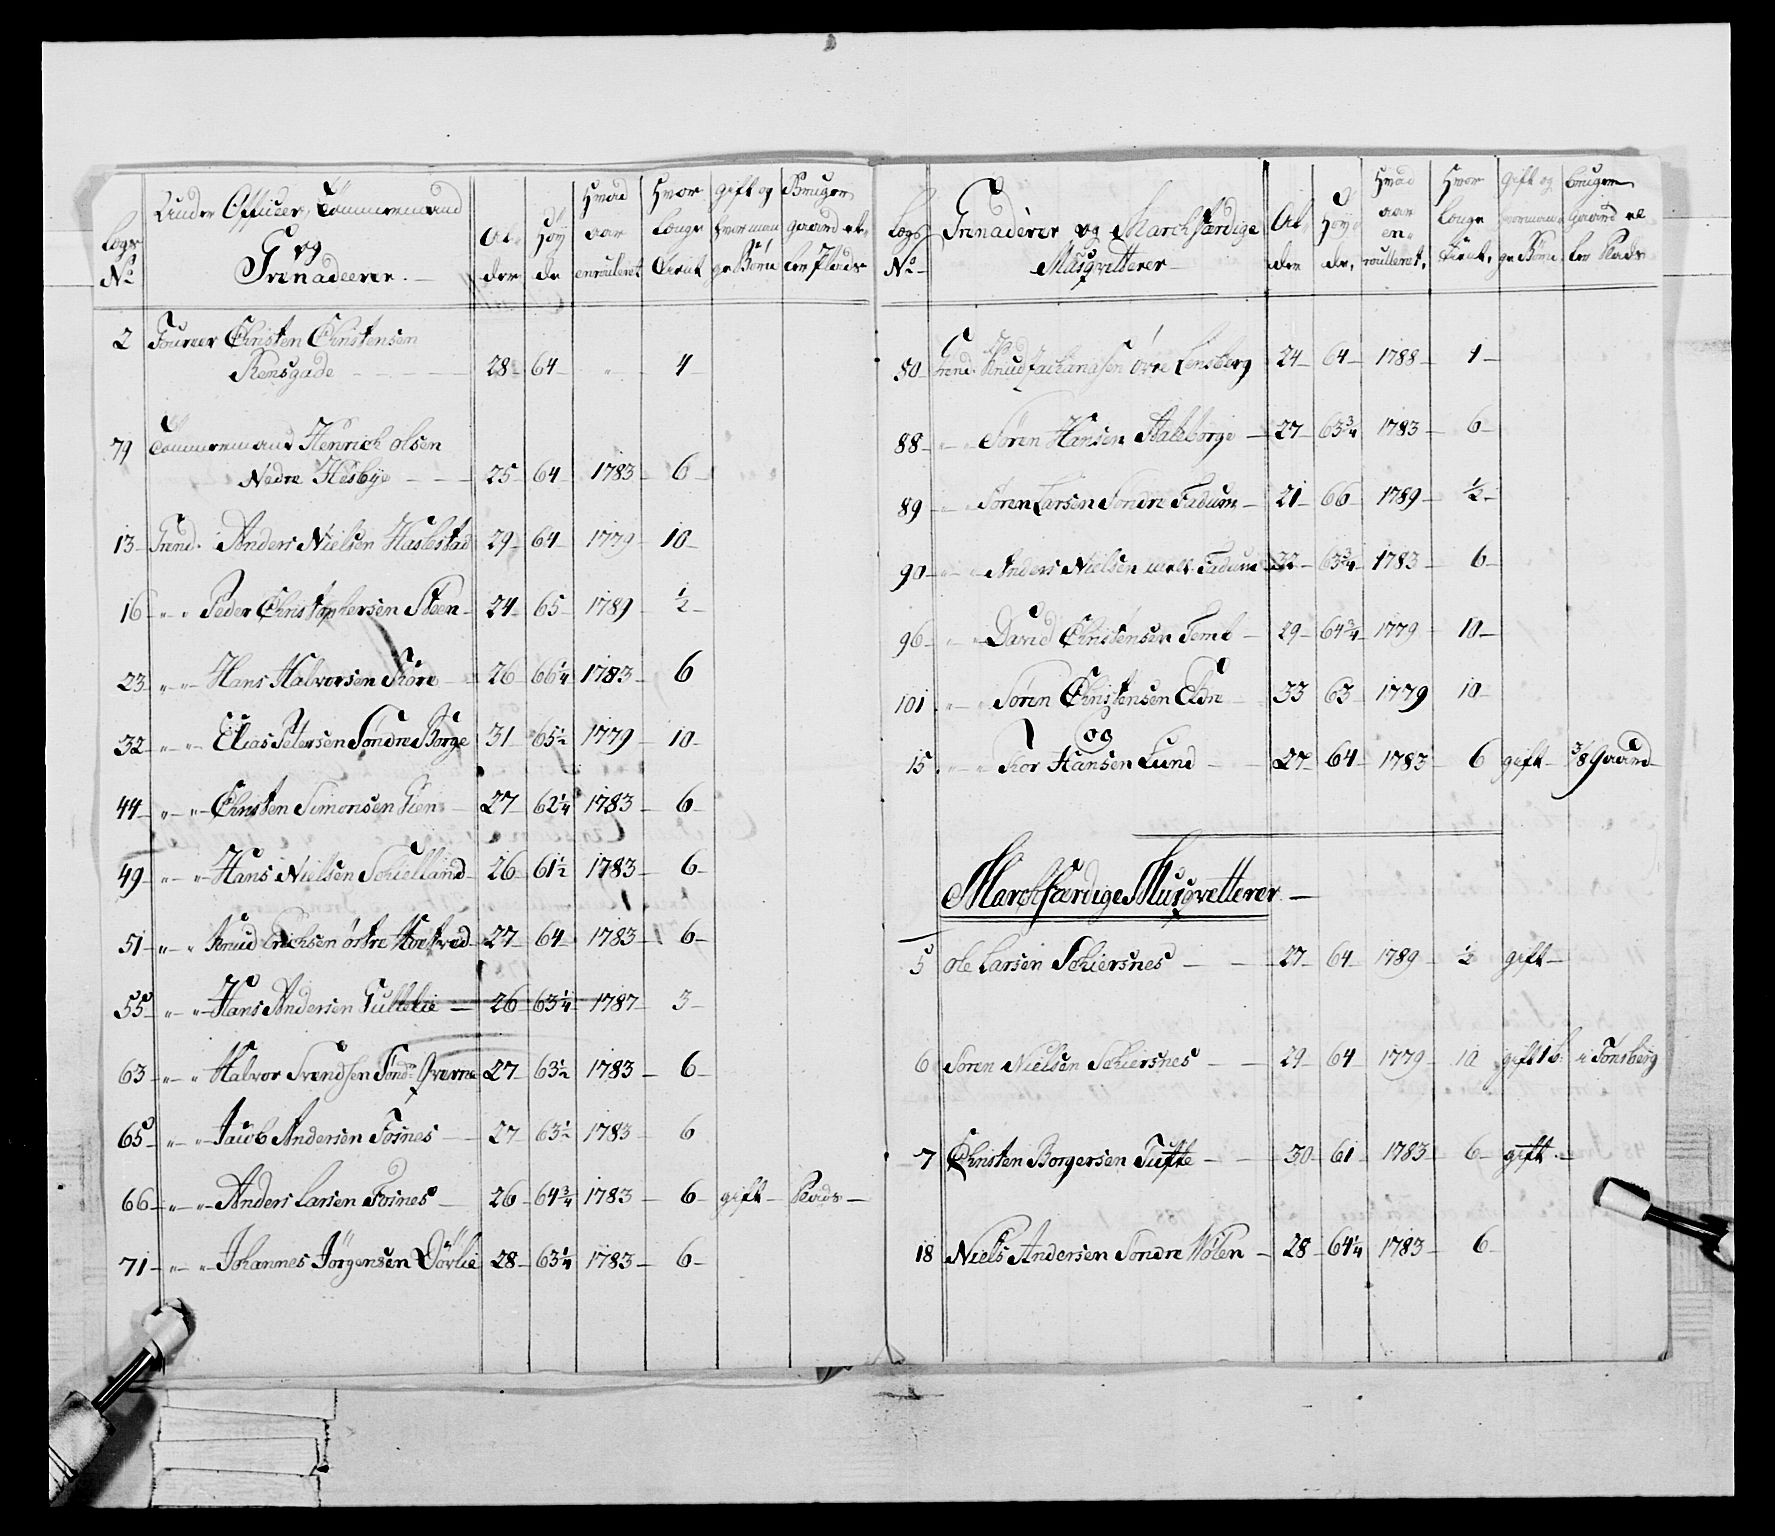 Logs No
Under Officeer, Tömmermænd
og
Grenadeerer.
Al-
der
Höy
de
Hvad
aar
enrouleret
Hvor
Længe
Tient
gift og
hvor man
ge Börn
Bruger
gaard el-
ler Plads
2 Foureer Christen Christensen
Rensgade 28 64 " 4
79 Tömmermand Henrich olsen
Nedre Hesbye 25 64 1783 6
13 Grend. Anders Nielsen Haslestad 29 64 1779 10
16 " " Peder Christophersen Steen 24 65 1789 ½
23 " " Hans Halvorsen Röre 26 66¼ 1783 6
32 " " Elias Petersen Söndre Borge 31 65½ 1779 10
44 " " Christen Simonsen Gien 27 62¼ 1783 6
49 " " Hans Nielsen Schielland 26 61½ 1783 6
51 " " Knud Erichsen östre Hortved 27 64 1783 6
55 " " Hans Andersen Gullelie 26 63¼ 1787 3
63 " " Halvor Svendsen Sönd: Qverne 27 63½ 1783 6
65 " " Jacob Andersen Fosnes 27 63½ 1783 6
66 " " Anders Larsen Fosnes 26 64¾ 1783 6 gift Plads
71 " " Johannes Jörgensen Dövlie 28 63¼ 1783 6
Logs
No
Grenaderer og Marchfærdige
Musqvitterer
Al-
der
Höy
de,
Hvad
aar
en-
roulleret,
Hvor
Længe
tient,
Gift og
hvor man
ge Börn
bruger
Gaard el
ler Plads
80 Grend: Knud Zachariasen övre Lensberg 24 64 1788 1
88 " " Sören Hansen Staleborge 27 63¾ 1783 6
89 " " Sören Larsen Söndre Fadum 21 66 1789 ½
90 " " Anders Nielsen mell: Fadum 32 63¾ 1783 6
96 " " David Christensen Temt 29 64¾ 1779 10
101 " " Sören Christensen Ekre 33 63 1779 10
og
15 " " Tor Hansen Lund 27 64 1783 6 gift 3/8 Gaard
Marchfærdige Musqvetterer
5 Ole Larsen Schiersnes 27 64 1789 ½ gift
6 Sören Nielsen Schiersnes 29 64 1779 10 gift 1 b: i Tönsberg
7 Christen Borgersen Tufte 30 61 1783 6 gift
18 Niels Andersen Söndre Holen 28 64¼ 1783 6